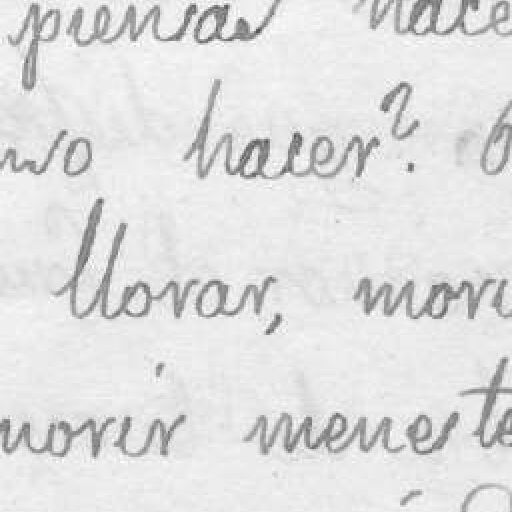 piensas hace
hacer?
llorar, mori
morir meneste